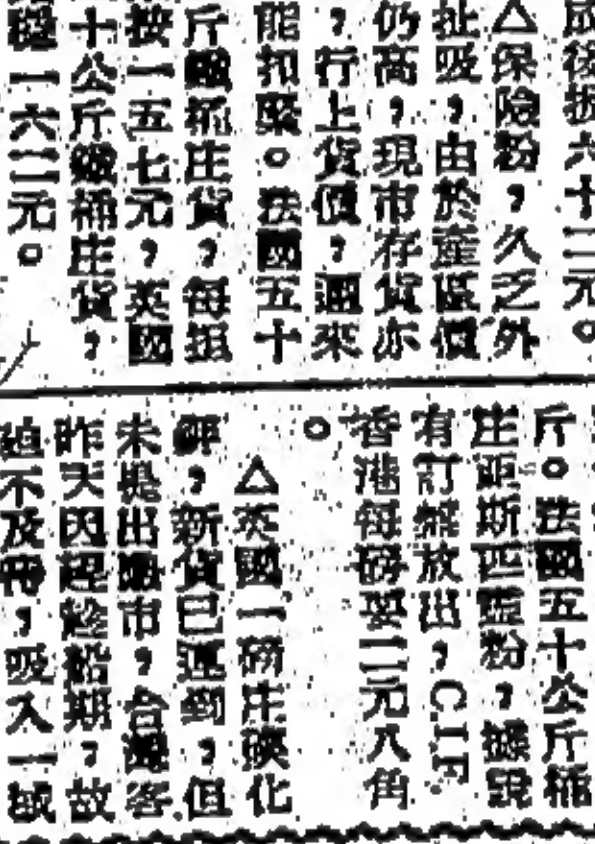 成後扳六十二元。
△保險粉，久乏外
扯吸，由於產區價
仍高，現市存貨亦
，行上貨價，邇來
能扣緊。法國五十
斤 庄貨，每担
按一五七元，英國
十公斤鐵桶庄貨，
一六二元。
斤。法國五十公斤桶
庄距斯匹靈粉，據說
有訂 放出，C.I.F.
香港每磅要二元八角
。
△英國一磅庄碘化
鉀，新貨已運到，但
未提出 市，台灣客
昨天因 船期，故
迫不及 ，吸入一